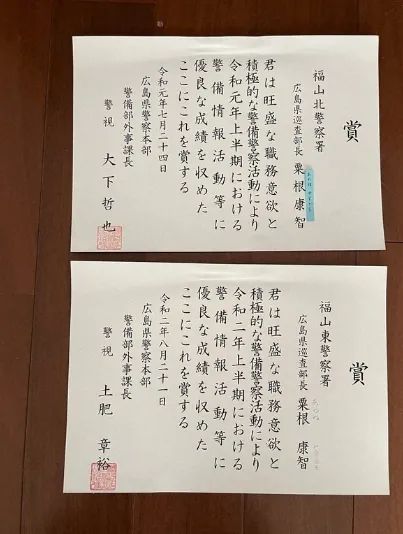 賞
福山北警察署
広島県巡査部長 粟根康智
君は旺盛な職務意欲と
積極的な警備警察活動により
令和元年上半期における
警備情報活動等に
優良な成績を収めた
ここにこれを賞する
令和元年七月二十四日
広島県警察本部
警備部外事課長
警視 大下哲也
賞
福山東警察署
広島県巡査部長 粟根 康智
君は旺盛な職務意欲と
積極的な警備警察活動により
令和二年上半期における
警備情報活動等に
優良な成績を収めた
ここにこれを賞する
令和二年八月二十一日
広島県警察本部
警備部外事課長
警視 土肥 章裕